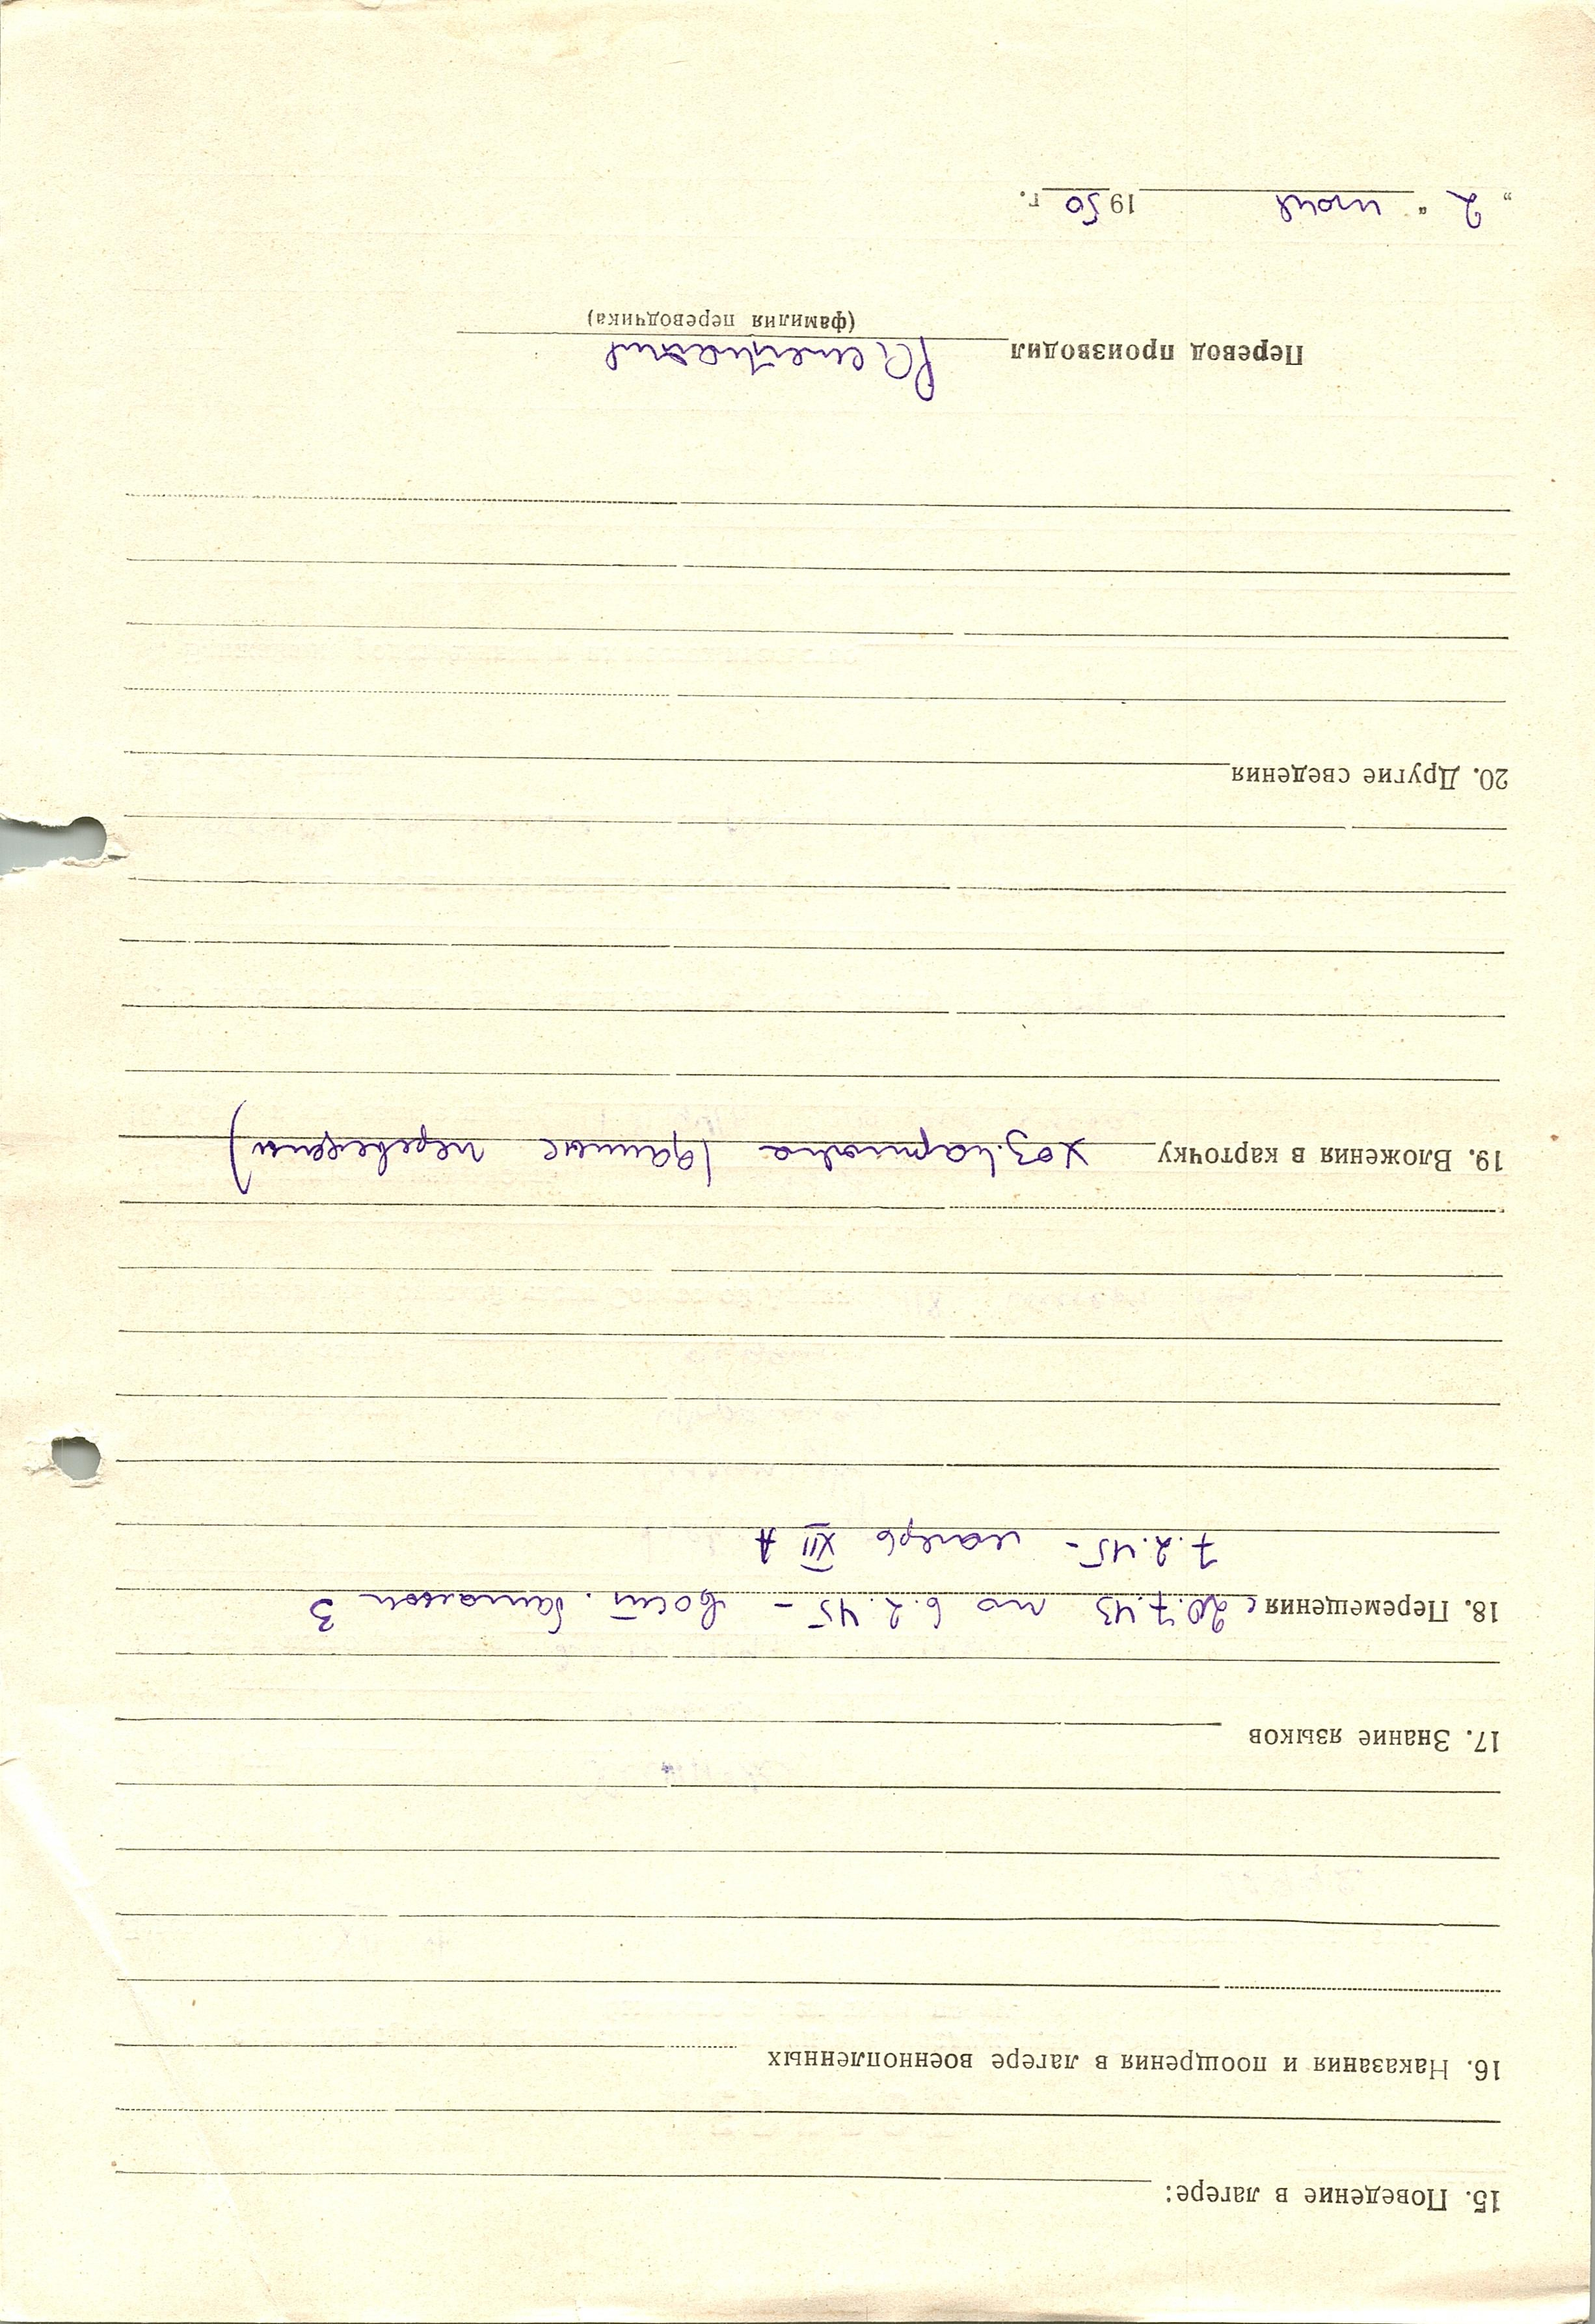 15. Поведение в лагере:
16. Наказания и поощрения в лагере военнопленных
17. Знание языков
18. Перемещения с 20.7.43 по 6.2.45 - вост. батальон 3
7.2.45 - лагерь XII A
19. Вложения в карточку хоз. карточка (данные переведены)
20. Другие сведения
Перевод производил
(фамилия переводчика)
„2“ июня 1950 г.